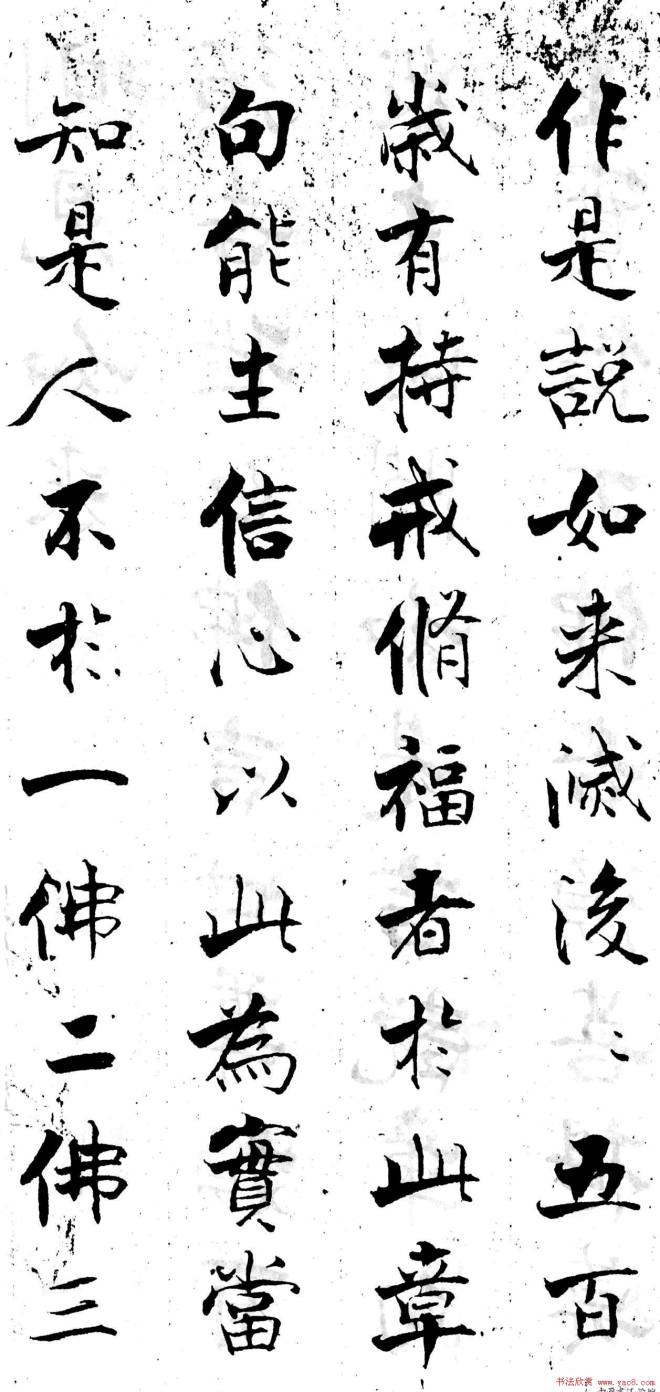 作是說如来滅後〻五百
歳有持戒脩福者於此章
句能生信心以此為實當
知是人不於一佛二佛三
书法欣赏 www.yac8.com